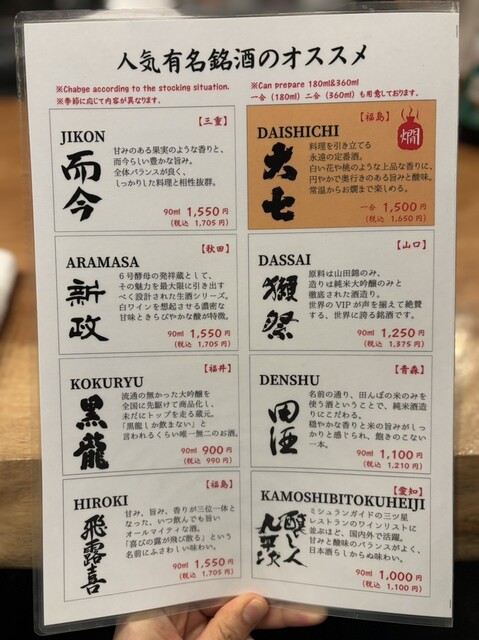 人気有名銘酒のオススメ
※Chabge according to the stocking situation.
※季節に応じて内容が異なります。
※Can prepare 180ml&360ml
一合（180ml）二合（360ml）も用意しております。
【三重】
JIKON
而今
甘みのある果実のような香りと、
而今らしい豊かな旨み。
全体バランスが良く、
しっかりした料理と相性抜群。
90ml 1,550円
(税込 1,705円)
【福島】
燗
DAISHICHI
大七
料理を引き立てる
永遠の定番酒。
白い花や桃のような上品な香りに、
円やかで奥行きのある旨みと酸味。
常温からお燗まで楽しめる。
一合 1,500円
(税込 1,650円)
【秋田】
ARAMASA
新政
６号酵母の発祥蔵として、
その魅力を最大限に引き出す
べく設計された生酒シリーズ。
白ワインを想起させる濃密な
甘味ときらびやかな酸が特徴。
90ml 1,550円
(税込 1,705円)
【山口】
DASSAI
獺祭
原料は山田錦のみ、
造りは純米大吟醸のみと
徹底された酒造り。
世界のVIPが声を揃えて絶賛
する、世界に誇る銘酒です。
90ml 1,250円
(税込 1,375円)
【福井】
KOKURYU
黒龍
流通の無かった大吟醸を
全国に先駆けて商品化し、
未だにトップを走る蔵元。
「黒龍しか飲まない」と
言われるくらい唯一無二のお酒。
90ml 900円
(税込 990円)
【青森】
DENSHU
田酒
名前の通り、田んぼの米のみを
使う酒ということで、純米酒造
りにこだわる。
穏やかな香りと米の旨みがしっ
かりと感じられ、飽きのこない
一本。
90ml 1,100円
(税込 1,210円)
【福島】
HIROKI
飛露喜
甘み、旨み、香りが三位一体と
なった、いつ飲んでも旨い
オールマイティな酒。
「喜びの露が飛び散る」という
名前にふさわしい味わい。
90ml 1,550円
(税込 1,705円)
【愛知】
KAMOSHIBITOKUHEIJI
醸し人
九平次
ミシュランガイドの三ツ星
レストランのワインリストに
並ぶほど、国内外で活躍。
甘みと酸味のバランスがよく、
日本酒らしからぬ味わい。
90ml 1,000円
(税込 1,100円)